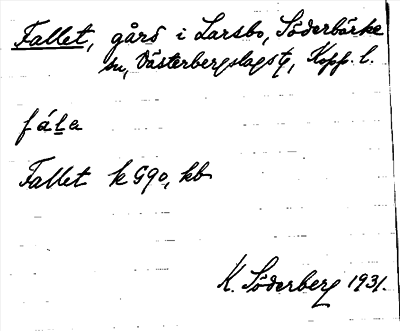 Fallet, gård i Larsbo, Söderbärke
sn, Västerbergslags tg, Kopp. l.
fála
Fallet k G90, kb
K. Söderberg 1931.